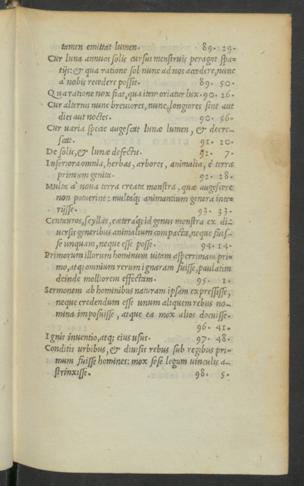 tamen emittat lumen. 89. 29.
Cur luna annuos solis cursus menstruis peragat spa-
tijs: & qua ratione sol nunc ad nos accedere, nunc
a nobis recedere possit. 89. 50.
Qua ratione nox fiat, qua item oriatur lux. 90. 26.
Cur alternis nunc breuiores, nunc longiores sint aut
dies aut noctes. 90. 56.
Cur uaria specie augescat lunæ lumen, & decre-
scat. 91. 20.
De solis, & lunæ defectu. 92. 7.
Inferiora omnia, herbas, arbores, animalia, è terra
primum genita. 92. 28.
Multa à noua terra creata monstra, quæ augescere
non potuerint: multaq; animantium genera inte-
rijsse. 93. 33.
Centauros, Scyllas, cæteraq; id genus monstra ex di-
uersis generibus animalium compacta, neque fuis-
se unquam, neque esse posse. 94. 14.
Primorum illorum hominum uitam asperrimam pri-
mo, atq; omnium rerum ignaram fuisse, paulatim
deinde molliorem effectam. 95. 1.
Sermonem ab hominibus naturam ipsam expressisse,
neque credendum esse unum aliquem rebus no-
mina imposuisse, atque ea mox alios docuisse.
96. 41.
Ignis inuentio, atq; eius usus. 97. 48.
Conditis urbibus, & diuisis rebus sub regibus pri-
mum fuisse homines: mox sese legum uinculis a-
strinxisse. 98. 5.